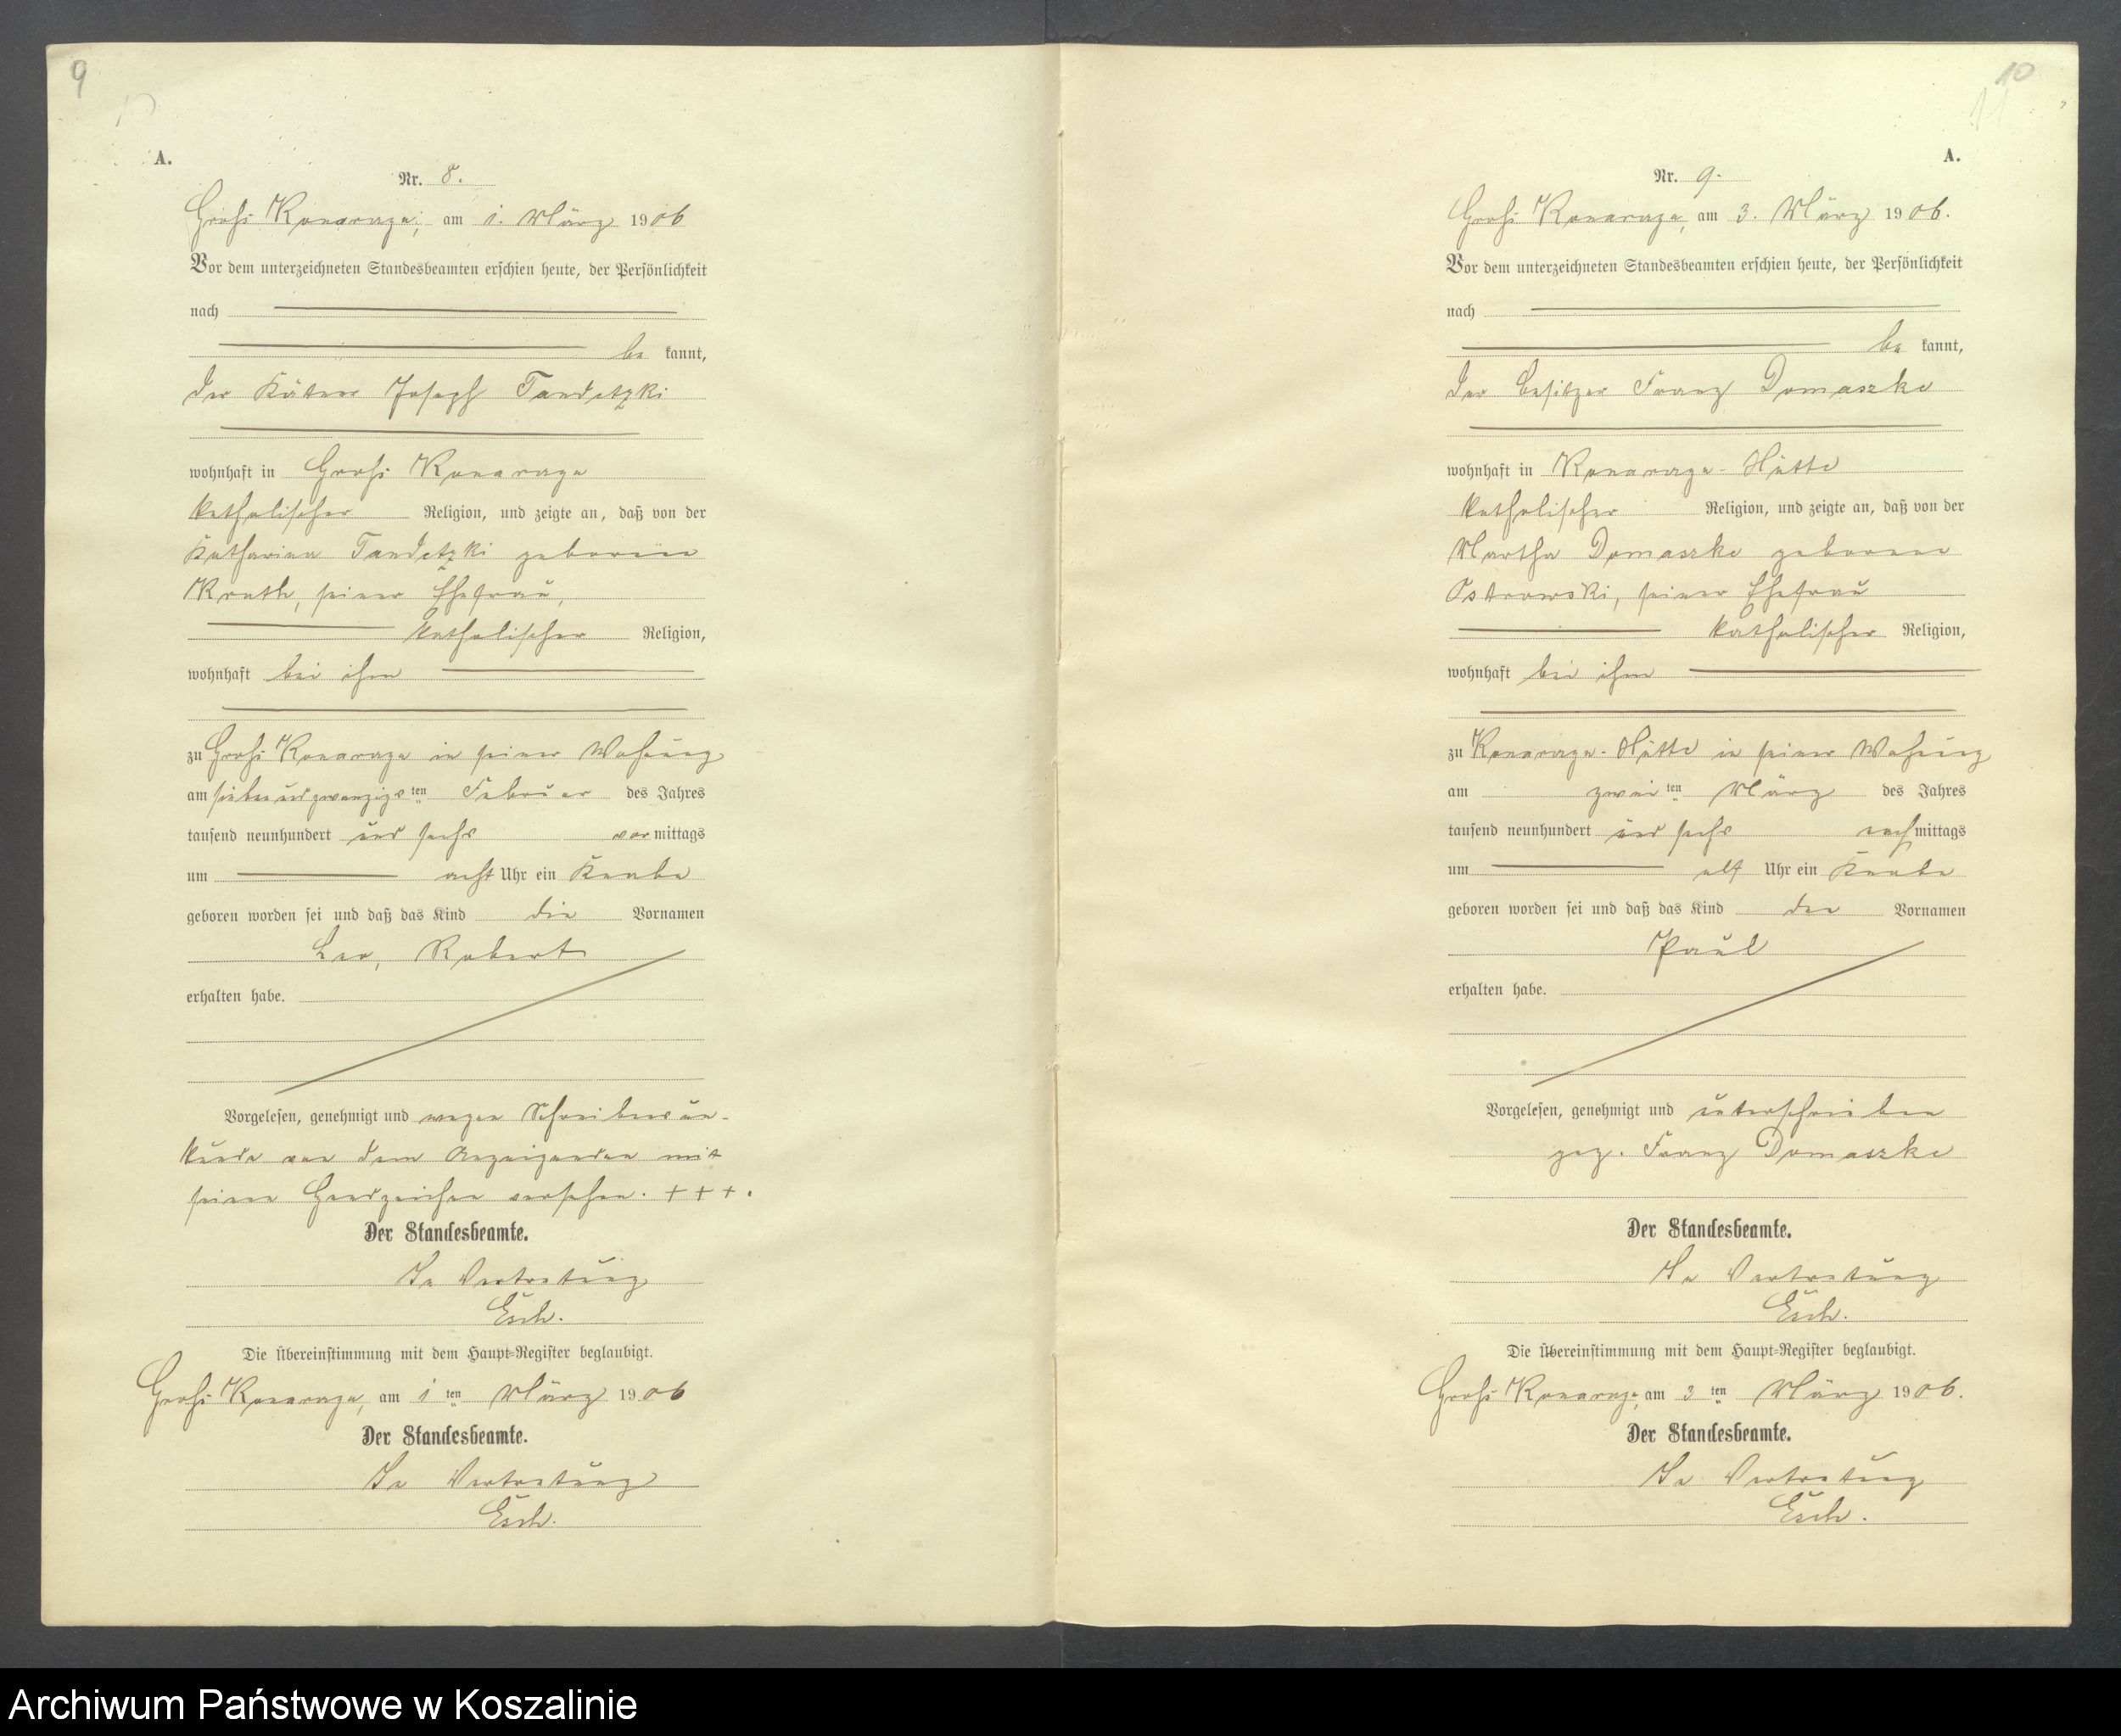 9
A.
Nr. 8.
Groß Konarzyn, am 1. März 1906
Vor dem unterzeichneten Standesbeamten erschien heute, der Persönlichkeit
nach
be kannt,
der Kätner Joseph Tandetzki
wohnhaft in Groß Konarzyn
katholischer Religion, und zeigte an, daß von der
Katharina Tandetzki geborene
Kruth, seiner Ehefrau,
katholischer Religion,
wohnhaft bei ihm
zu Groß Konarzyn in seiner Wohnung
am siebenundzwanzigsten Februar des Jahres
tausend neunhundert und sechs vormittags
um acht Uhr ein Knabe
geboren worden sei und daß das Kind die Vornamen
Leo, Robert
erhalten habe.
Vorgelesen, genehmigt und wegen Schreibensun-
kunde von dem Anzeigenden mit
seinen Handzeichen versehen. +++.
Der Standesbeamte.
In Vertretung
Esch.
Die Übereinstimmung mit dem Haupt-Register beglaubigt.
Groß Konarzyn, am 1 ten März 1906
Der Standesbeamte.
In Vertretung
Esch.
10
11
A.
Nr. 9.
Groß Konarzyn, am 3. März 1906.
Vor dem unterzeichneten Standesbeamten erschien heute, der Persönlichkeit
nach
be kannt,
der Besitzer Franz Domaszke
wohnhaft in Konarzyn-Hütte
katholischer Religion, und zeigte an, daß von der
Martha Domaszke geborene
Ostrowski, seiner Ehefrau
katholischer Religion,
wohnhaft bei ihm
zu Konarzyn-Hütte in seiner Wohnung
am zweiten März des Jahres
tausend neunhundert und sechs nachmittags
um elf Uhr ein Knabe
geboren worden sei und daß das Kind den Vornamen
Paul
erhalten habe.
Vorgelesen, genehmigt und unterschrieben
gez. Franz Domaszke
Der Standesbeamte.
In Vertretung
Esch.
Die Übereinstimmung mit dem Haupt-Register beglaubigt.
Groß Konarzyn, am 3 ten März 1906.
Der Standesbeamte.
In Vertretung
Esch.
Archiwum Państwowe w Koszalinie